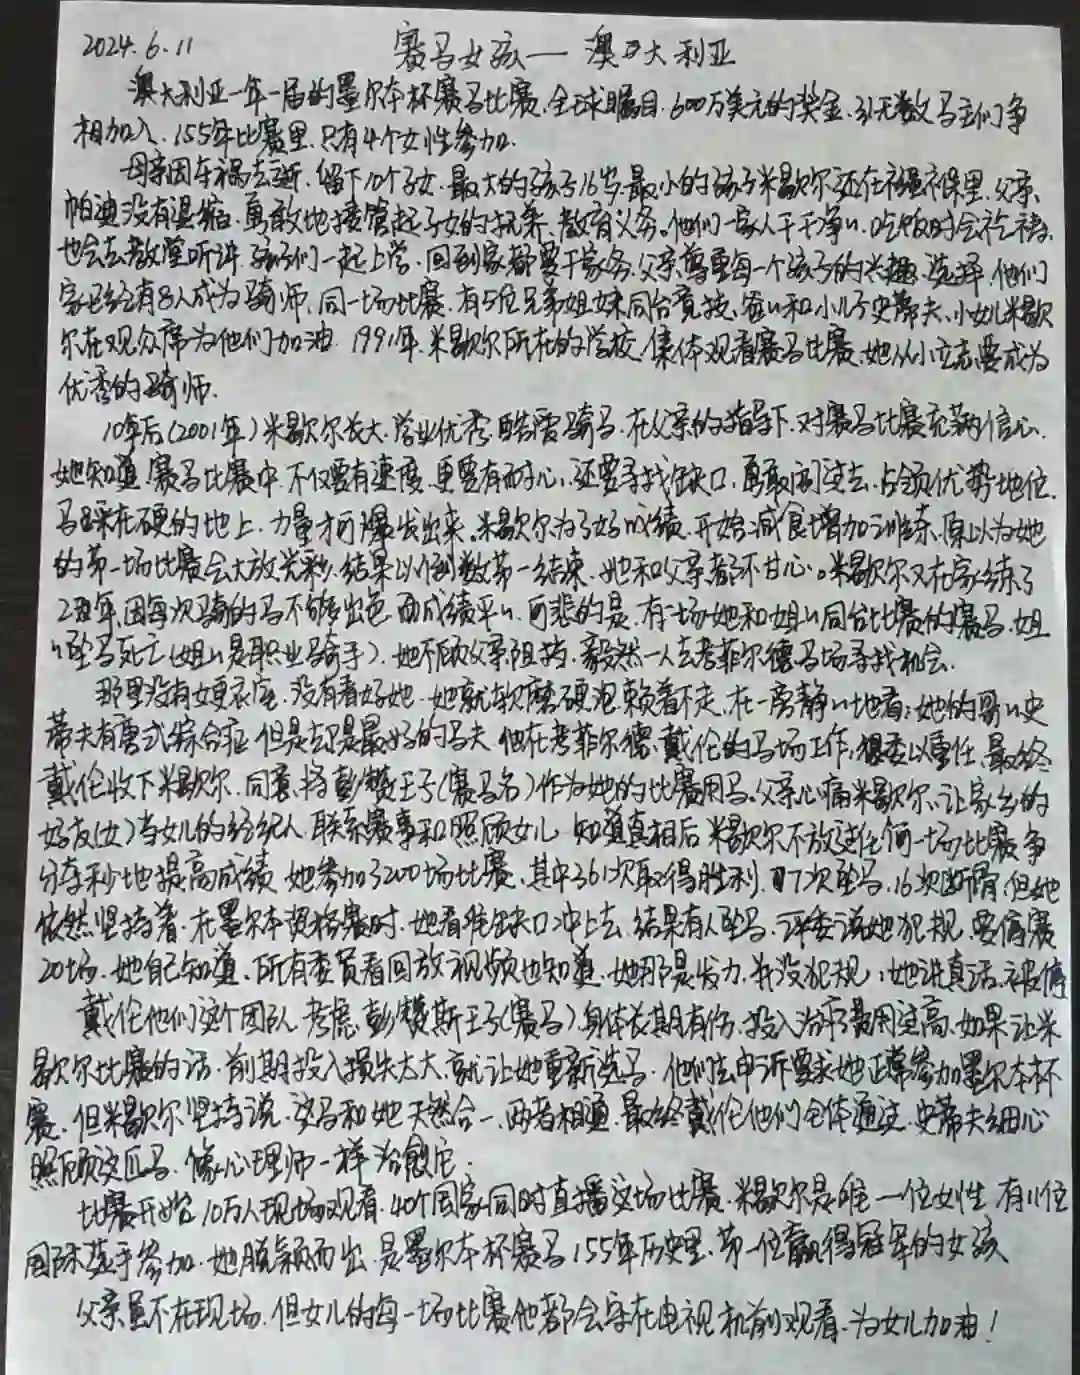 2024.6.11 赛马女孩——澳大利亚
澳大利亚一年一届的墨尔本杯赛马比赛.全球瞩目.600万美元的奖金.引无数马主们争
相加入.155年比赛里.只有4个女性参加.
母亲因车祸去逝.留下10个子女.最大的孩子16岁.最小的孩子米歇尔还在襁褓里.父亲
帕迪没有退缩.勇敢地接管起子女的抚养、教育义务。他们一家人干干净〃.吃饭时会祈祷.
也会去教堂听讲.孩子们一起上学.回到家都要干家务.父亲尊重每一个孩子的兴趣、选择.他们
家已经有8人成为骑师.同一场比赛.有5位兄弟姐妹同台竞技.爸〃和小儿子史蒂夫、小女儿米歇
尔在观众席为他们加油.1991年.米歇尔所在的学校.集体观看赛马比赛.她从小立志要成为
优秀的骑师.
10年后(2001年)米歇尔长大.学业优秀.酷爱骑马.在父亲的指导下.对赛马比赛充满信心.
她知道.赛马比赛中.不仅要有速度.更要有耐心.还要寻找缺口.勇敢闯过去.占领优势地位.
马踩在硬的地上.力量才可爆发出来。米歇尔为了好成绩.开始减食增加训练.原以为她
的第一场比赛会大放光彩.结果以倒数第一结束.她和父亲都不甘心。米歇尔又在家练了
2年.因每次骑的马不够出色.而成绩平〃.可悲的是.有一场她和姐〃同台比赛的赛马.姐
〃坠马死亡(姐〃是职业骑手).她不顾父亲阻挡.毅然一人去考菲尔德马场寻找机会.
那里没有女更衣室.没有看好她.她就软磨硬泡.赖着不走.在一旁静〃地看;她的哥〃史
蒂夫有唐式综合症.但是却是最好的马夫.他在考菲尔德、戴伦的马场工作.狠委以重任.最终
戴伦收下米歇尔.同意将彭赞王子(赛马名)作为她的比赛用马。父亲心痛米歇尔.让家乡的
好友(女)当女儿的经纪人.联系赛事和照顾女儿.知道真相后.米歇尔不放过任何一场比赛.争
分夺秒地提高成绩.她参加了3200场比赛.其中361次取得胜利.77次坠马.16次断骨.但她
依然坚持着.在墨尔本资格赛时.她看准缺口冲上去.结果有人坠马.评委说她犯规.要停赛
20场.她自己知道.所有委员看回放视频也知道.她那是发力.并没犯规.她讲真话.被停
戴伦他们这个团队.考虑.彭赞斯王子(赛马)身体长期有伤.投入治疗费用过高.如果让米
歇尔比赛的话.前期投入损失太大.就让她重新选马.他们去申诉要求她正常参加墨尔本杯
赛.但米歇尔坚持说.这马和她天然合一.两者相通.最终戴伦他们全体通过.史蒂夫细心
照顾这匹马.像心理师一样治愈它.
比赛开始.10万人现场观看.40个国家同时直播这场比赛.米歇尔是唯一一位女性.有11位
国际选手参加.她脱颖而出.是墨尔本杯赛马155年历史里.第一位赢得冠军的女孩
父亲虽不在现场.但女儿的每一场比赛他都会守在电视机前观看.为女儿加油!